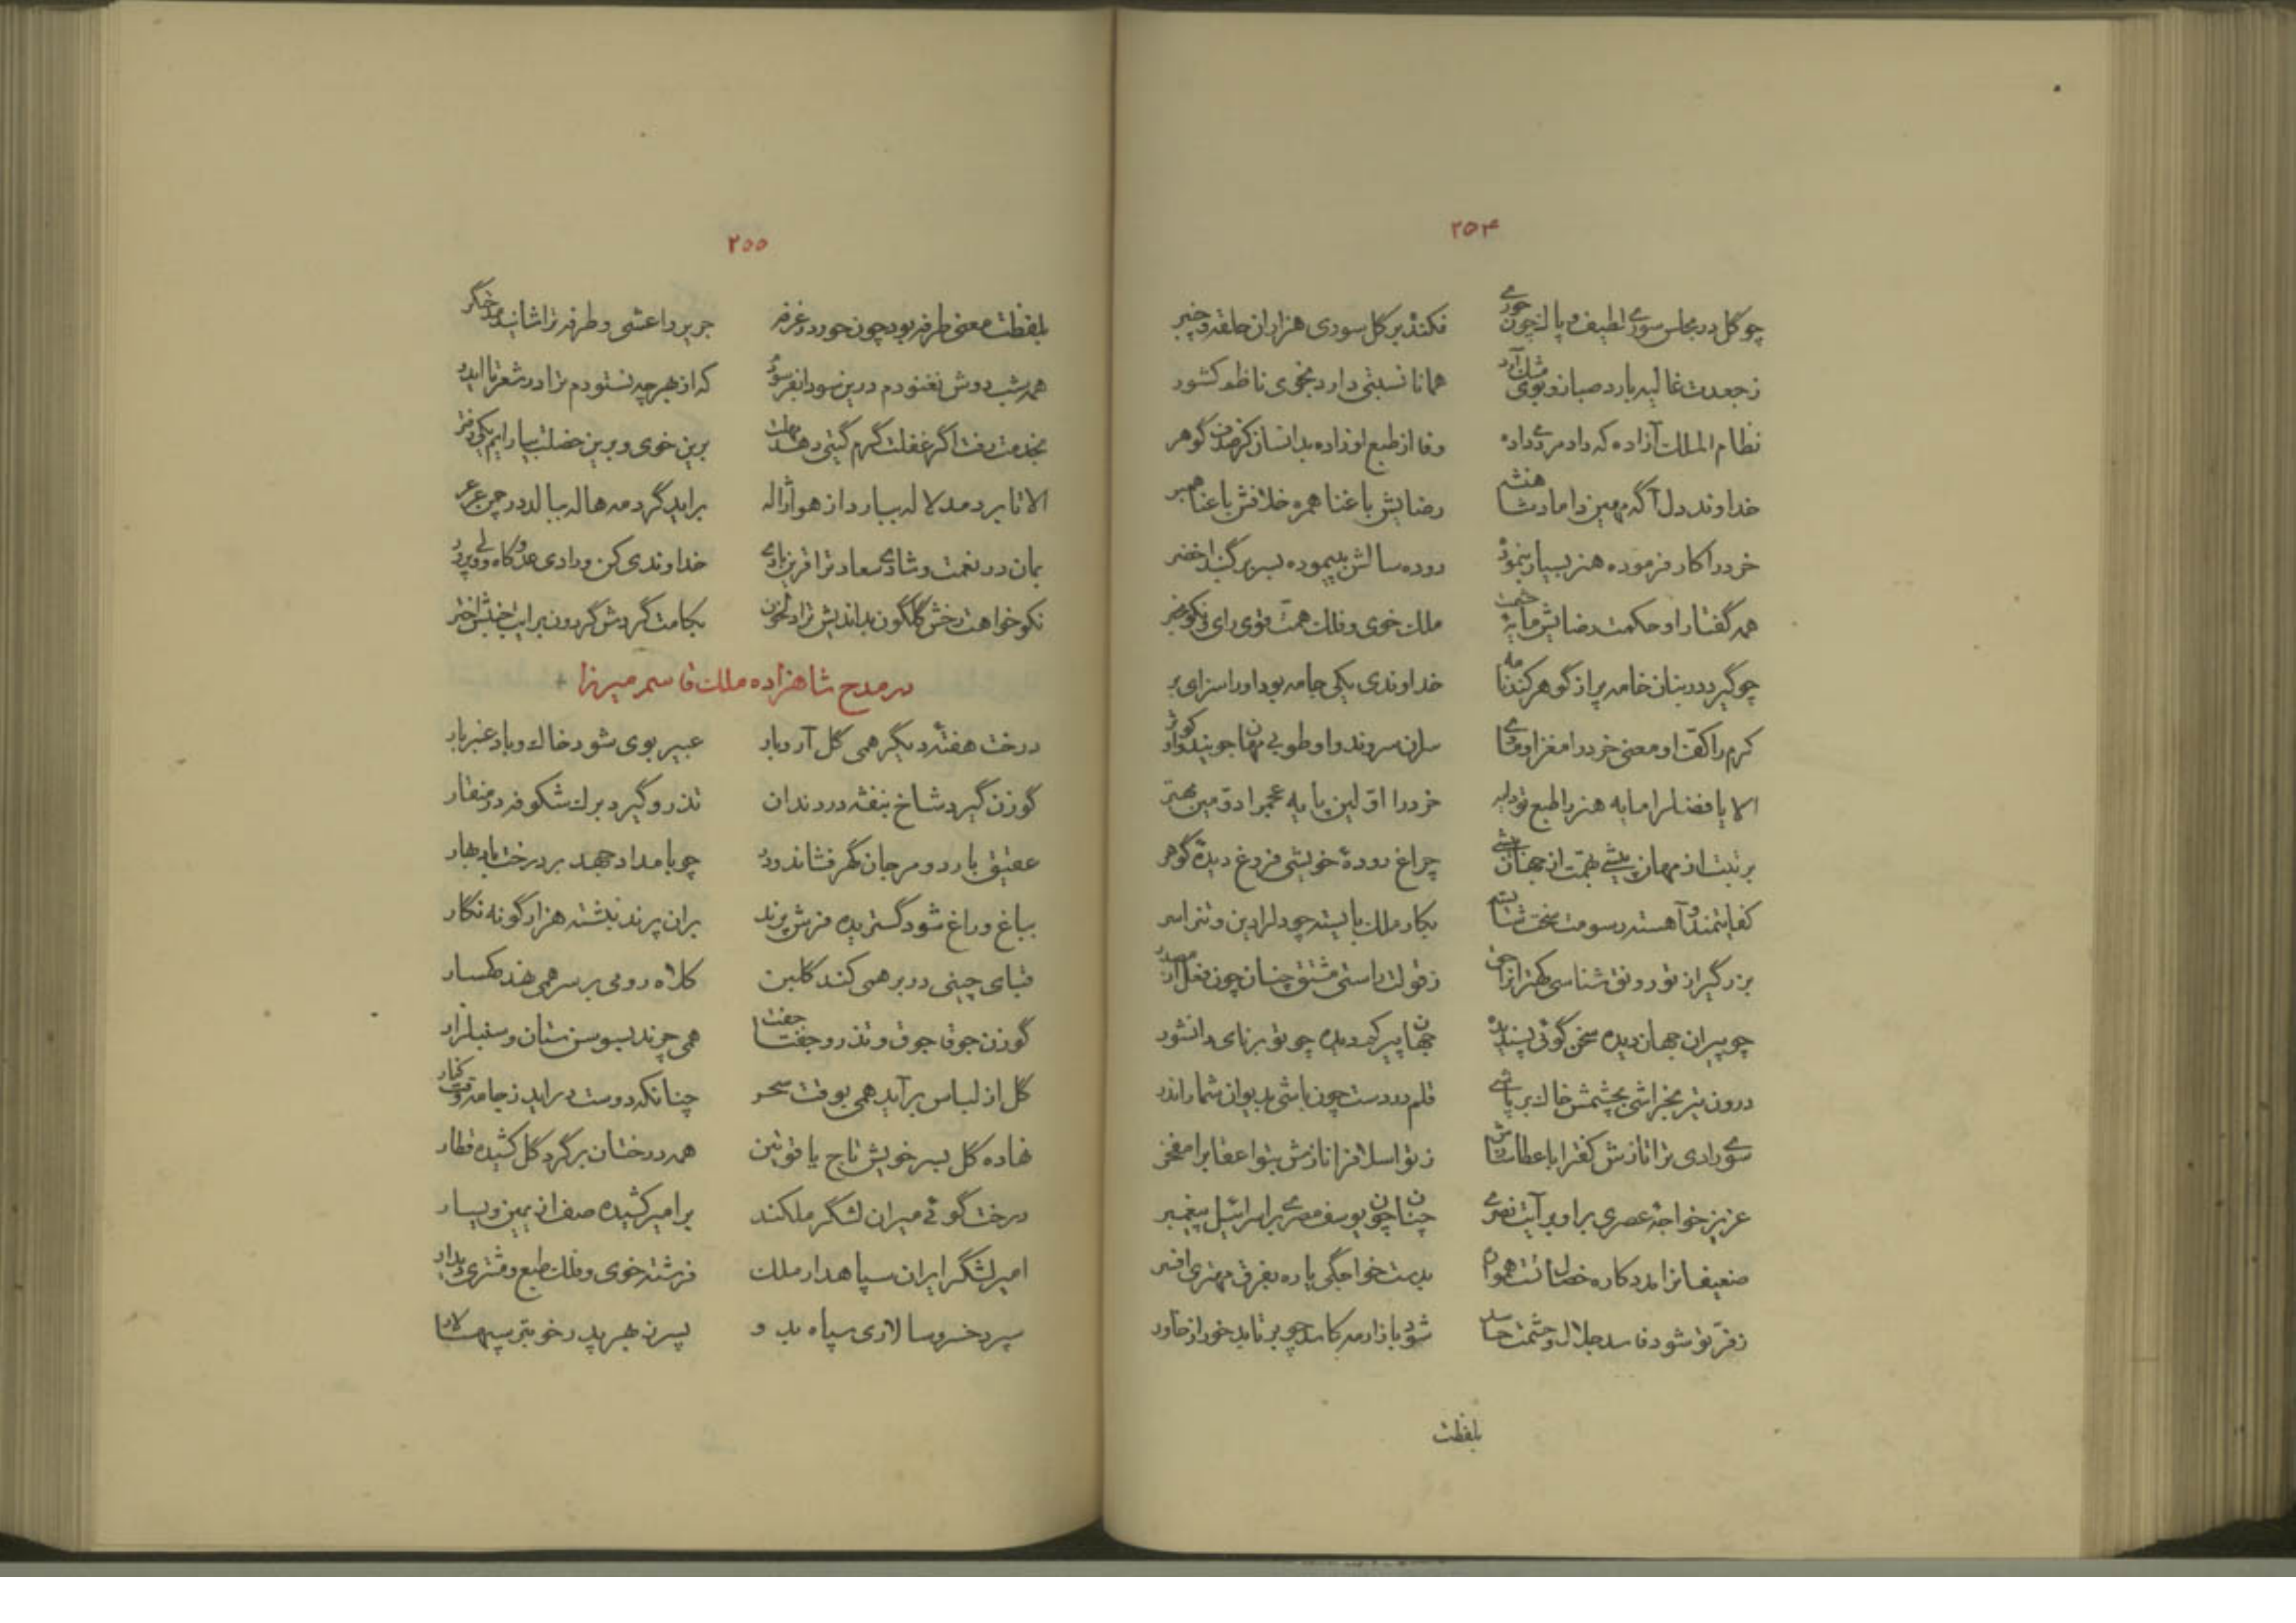 ۲۵۴
چو گل در مجلس سوری لطیف و پاک چون حوری فکنده بر گل سوری هزاران حلقه و چنبر
ز جعدت غالیه بارد صبا زو بوی مشک آرد همانا نسبتی دارد بخوی ناظم کشور
نظام الملک آزاده که داد مردمی داده وفا از طبع او زاده بدانسان کز صدف گوهر
خداوند دل آگه مهین داماد شاهنشه رضایش با غنا همره خلافش با عنا همبر
خرد را کار فرموده هنر بسیار بنموده دو ده سالش بپیموده بسر بر گنبد اخضر
همه گفتار او حکمت رضایش مایه ملک خوی و فلک همت قوی رای و نکو مخبر
چو گیرد در بنان خامه پر از گوهر کند نامه خداوندی یکی جامه بود او را سزای بر
کرم را کف او معنی خرد را مغز او سران سروند و او طوبی مهان جویند و او کوثر
الا یا فضل را مایه هنر با طبع تو دایه خرد را اولین پایه عجم را دومین مهتر
برتبت از مهان پیشی بهمت از جهان بیشی چراغ دودهٔ خویشی فروغ دیدهٔ گوهر
کفایتمند و آهسته رسومت سخت شایسته بکار ملک بایسته چو دل را دین و تن را سر
بزرگی از تو رونق شناسی کهتر از حق ز قولت راستی مشتق چنان چون فعل از مصدر
چو پیران جهاندیده سخن گوئی پسندیده جهان پیر کی دیده چو تو برنای دانشور
درون تیر بخراشی بچشمش خاک بر پاشی قلم در دست چون باشی بدیوان شمار اندر
سوی رادی ترا تازش کفت را با عطا سازش ز تو اسلاف را نازش بتو اعقاب را مفخر
عزیز خواجهٔ عصری برا و بر آیت نصری چنان چون یوسف مصری بر اسرائیل پیغمبر
ضعیفان را مددکاره خصالت همواره بدست خواجگی یاره بفرق مهتری افسر
ز فر تو شود فاسد جلال و حشمت حاسد شود بازار مه کاسد چو بر تابد خور از خاور
بلفظت
۲۵۵
بلفظت معنی طرفه بود چون حور در غرفه جریر و اعشی و طرفه ترا شایند مدحتگر
همه شب دوش نغنودم درین سودا بفرسودم که از هر چه نستودم ترا در شعرتا ایدر
بخدمت رفت اگر غفلت گرم گیتی دهد مهلت برین خوی و برین خصلت بیارایم یکی دفتر
الا تا بر دمد لاله ببارد از هوا ژاله براید گرد مه هاله ببالد در چمن عرعر
بمان در نعمت و شادی سعادت را قرین بادی خداوندی کن و رادی عدو کاه و ولی پرور
نکو خواهت رخش گلگون بداندیش ترا دل خون بکامت گردش گردون برایت جنبش اختر
در مدح شاهزاده ملک قاسم میرزا +
درخت هفتهٔ دیگر همی گل آرد بار عبیر بوی شود خاک و باد عنبر بار
گوزن گیرد شاخ بنفشه در دندان تذرو گیرد برک شکوفه در منقار
عقیق بارد و مرجان گهر فشاند و در چو بامداد جهد بر درخت باد بهار
بباغ و راغ شود گستریده فرش پرند بران پرند نبشته هزار گونه نگار
قبای چینی در بر همی کند گلبن کلاه رومی بر سر همی نهد کهسار
گوزن جوق جوق و تذرو جفتا جفت همی چرند بسوسن ستان و سنبلزار
گل از لباس برآید همی بوقت سحر چنانکه دوست در اید ز جامه وقت کنار
نهاده گل بسر خویش تاج یاقوتین همه درختان بر گرد گل کشیده قطار
درخت گوئی میران لشگر ملکند بر امیر کشیده صف از یمین و یسار
امیر لشگر ایران سپاهدار ملک فرشته خوی و فلک طبع و مشتری دیدار
سپرد خسرو سالاری سپاه بد و پسر نه بهر پدر خوبتر سپهسالار